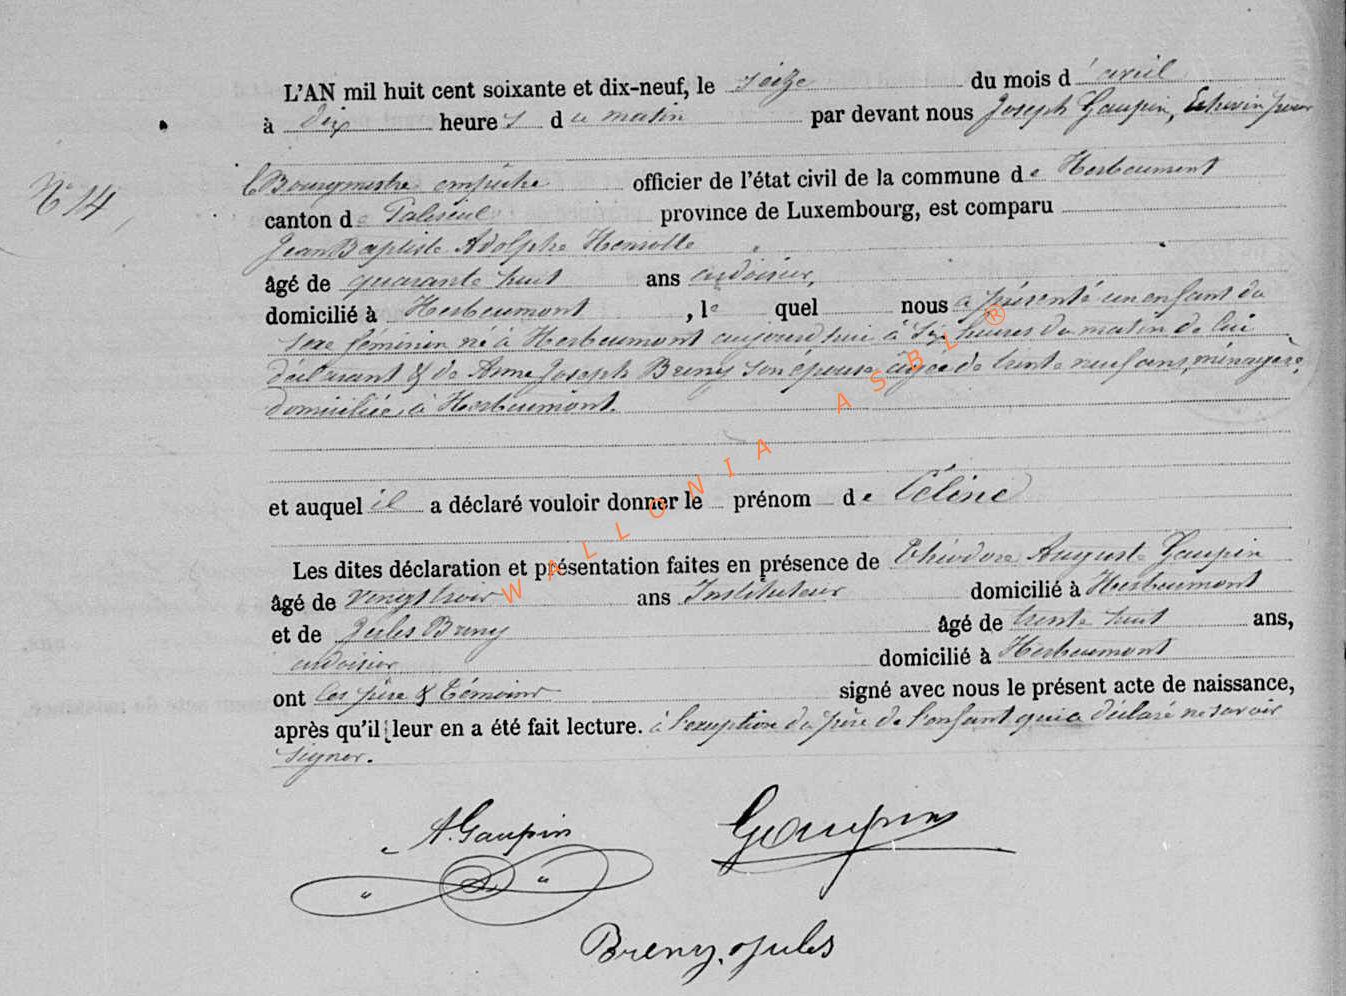 L'AN mil huit cent soixante et dix-neuf, le seize du mois d'avril
à dix heures du matin par devant nous Joseph Gaupin, Echevin pour
le Bourgmestre empêché officier de l'état civil de la commune de Herbeumont
N° 14
canton de Paliseul province de Luxembourg, est comparu
Jean Baptiste Adolphe Henrotte
âgé de quarante huit ans ardoisier,
domicilié à Herbeumont, lequel nous a présenté un enfant du
sexe féminin né à Herbeumont aujourd'hui à six heures du matin de lui
déclarant & de Anne Joseph Breny son épouse, âgée de trente neuf ans, ménagère,
domiciliée à Herbeumont.
et auquel il a déclaré vouloir donner le prénom de Céline
Les dites déclaration et présentation faites en présence de Théodore Auguste Gaupin
âgé de vingt trois ans Instituteur domicilié à Herbeumont
et de Jules Breny âgé de trente huit ans,
ardoisier domicilié à Herbeumont
ont les père & témoins signé avec nous le présent acte de naissance,
après qu'il leur en a été fait lecture. à l'exception du père de l'enfant qui a déclaré ne savoir
signer.
A. Gaupin Gaupin
Breny, Jules
WALLONIA ASBL ®